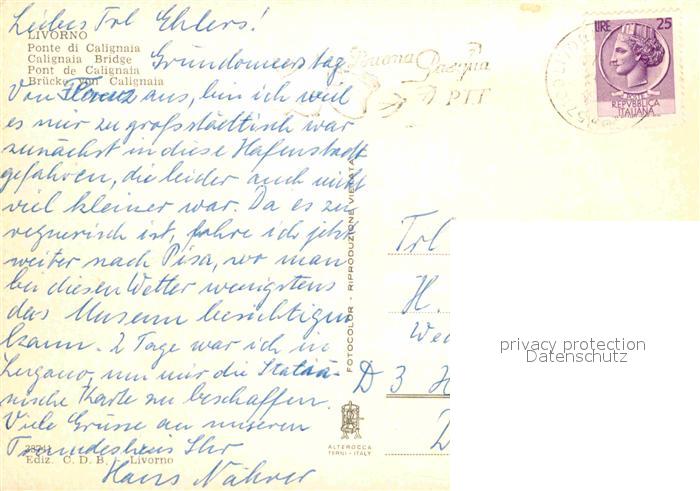 Liebes Frl Ehlers!
LIVORNO
Ponte di Calignaia
Calignaia Bridge
Pont de Calignaia
Brücke von Calignaia
Gründonnerstag
Von Florenz aus, bin ich weil
es mir zu großstädtisch war
zunächst in diese Hafenstadt
gefahren, die leider auch nicht
viel kleiner war. Da es zu
regnerisch ist, fahre ich jetzt
weiter nach Pisa, wo man
bei diesen Wetter wenigstens
das Museum besichtigen
kann. 2 Tage war ich in
Lugano, um mir die
nische Karte zu beschaffen.
Viele Grüsse an unseren
Freundeskreis Ihr
Hans
Ediz. C. D. B. - Livorno
FOTOCOLOR - RIPRODUZIONE VIETATA
ALTEROCCA
TERNI - ITALY
Buona Pasqua
PTT
LIRE 25
POSTE
REPVBBLICA
ITALIANA
Frl
H.
We
D 3 H
privacy protection
Datenschutz